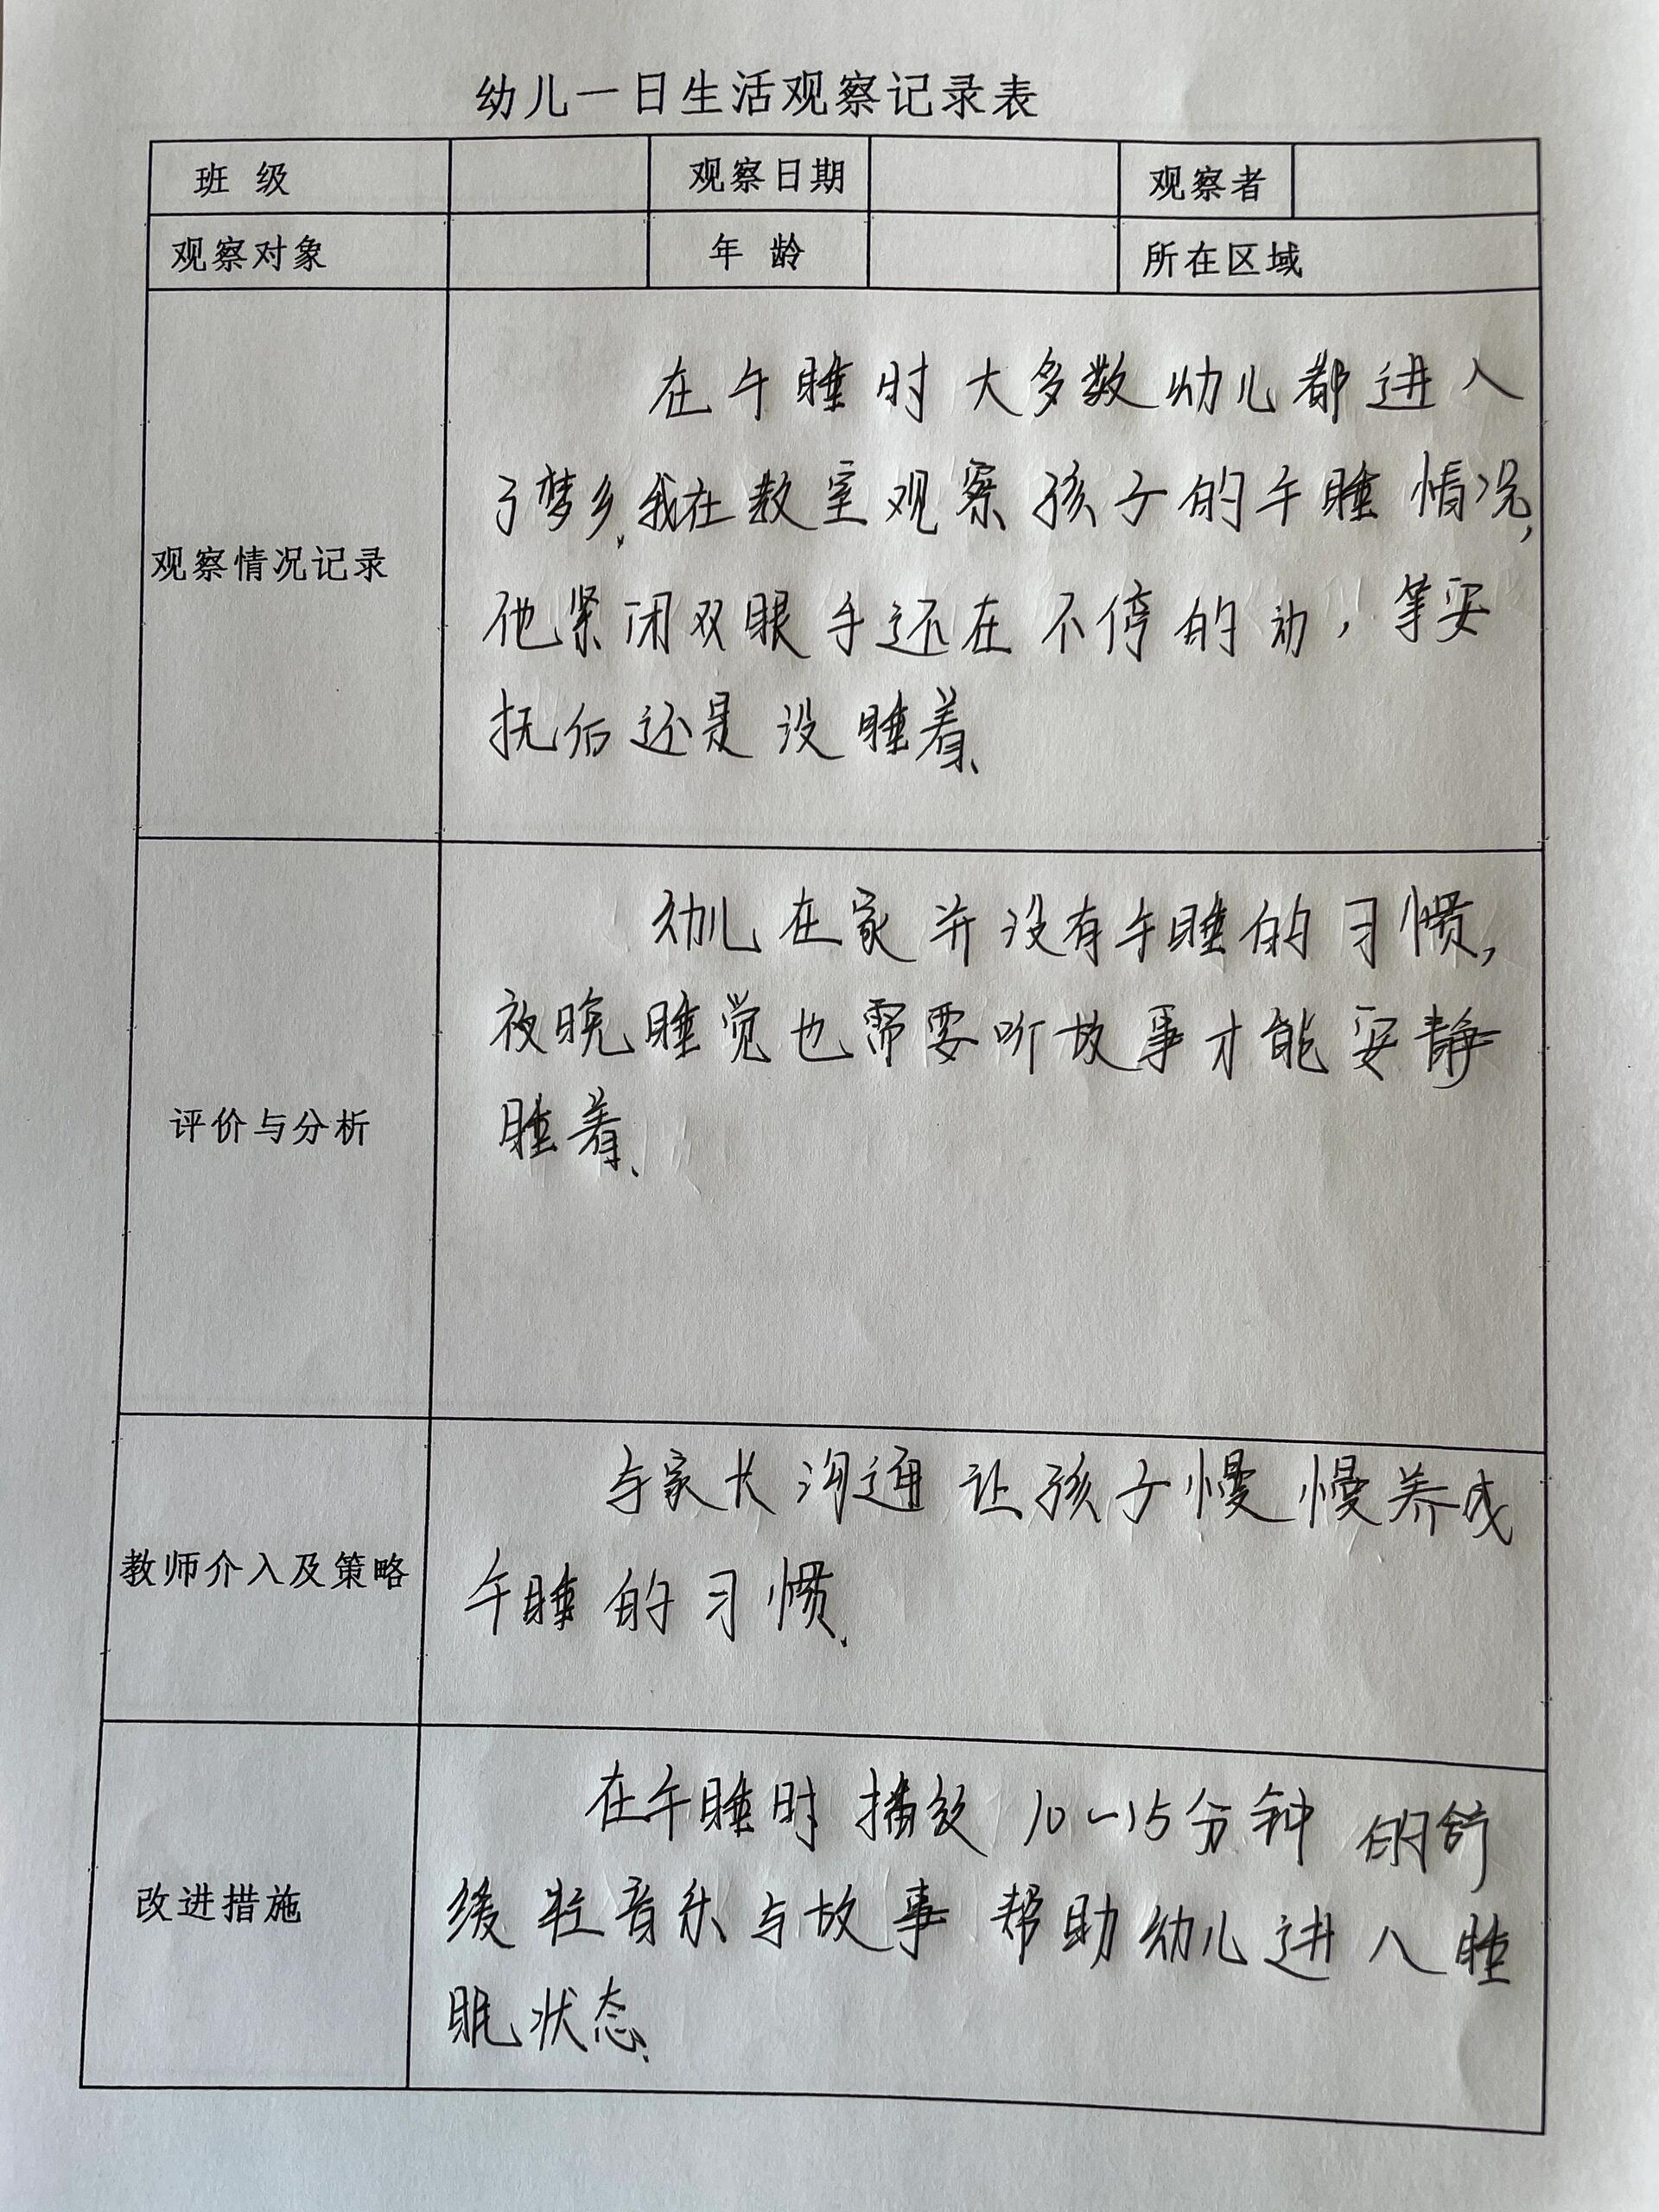 幼儿一日生活观察记录表
班 级 观察日期 观察者
观察对象 年 龄 所在区域
观察情况记录
在午睡时大多数幼儿都进入
了梦乡,我在教室观察孩子的午睡情况,
他紧闭双眼手还在不停的动,等安
抚后还是没睡着、
评价与分析
幼儿在家并没有午睡的习惯,
夜晚睡觉也需要听故事才能安静
睡着、
教师介入及策略
与家长沟通让孩子慢慢养成
午睡的习惯、
改进措施
在午睡时播放10~15分钟的舒
缓轻音乐与故事帮助幼儿进入睡
眠状态、